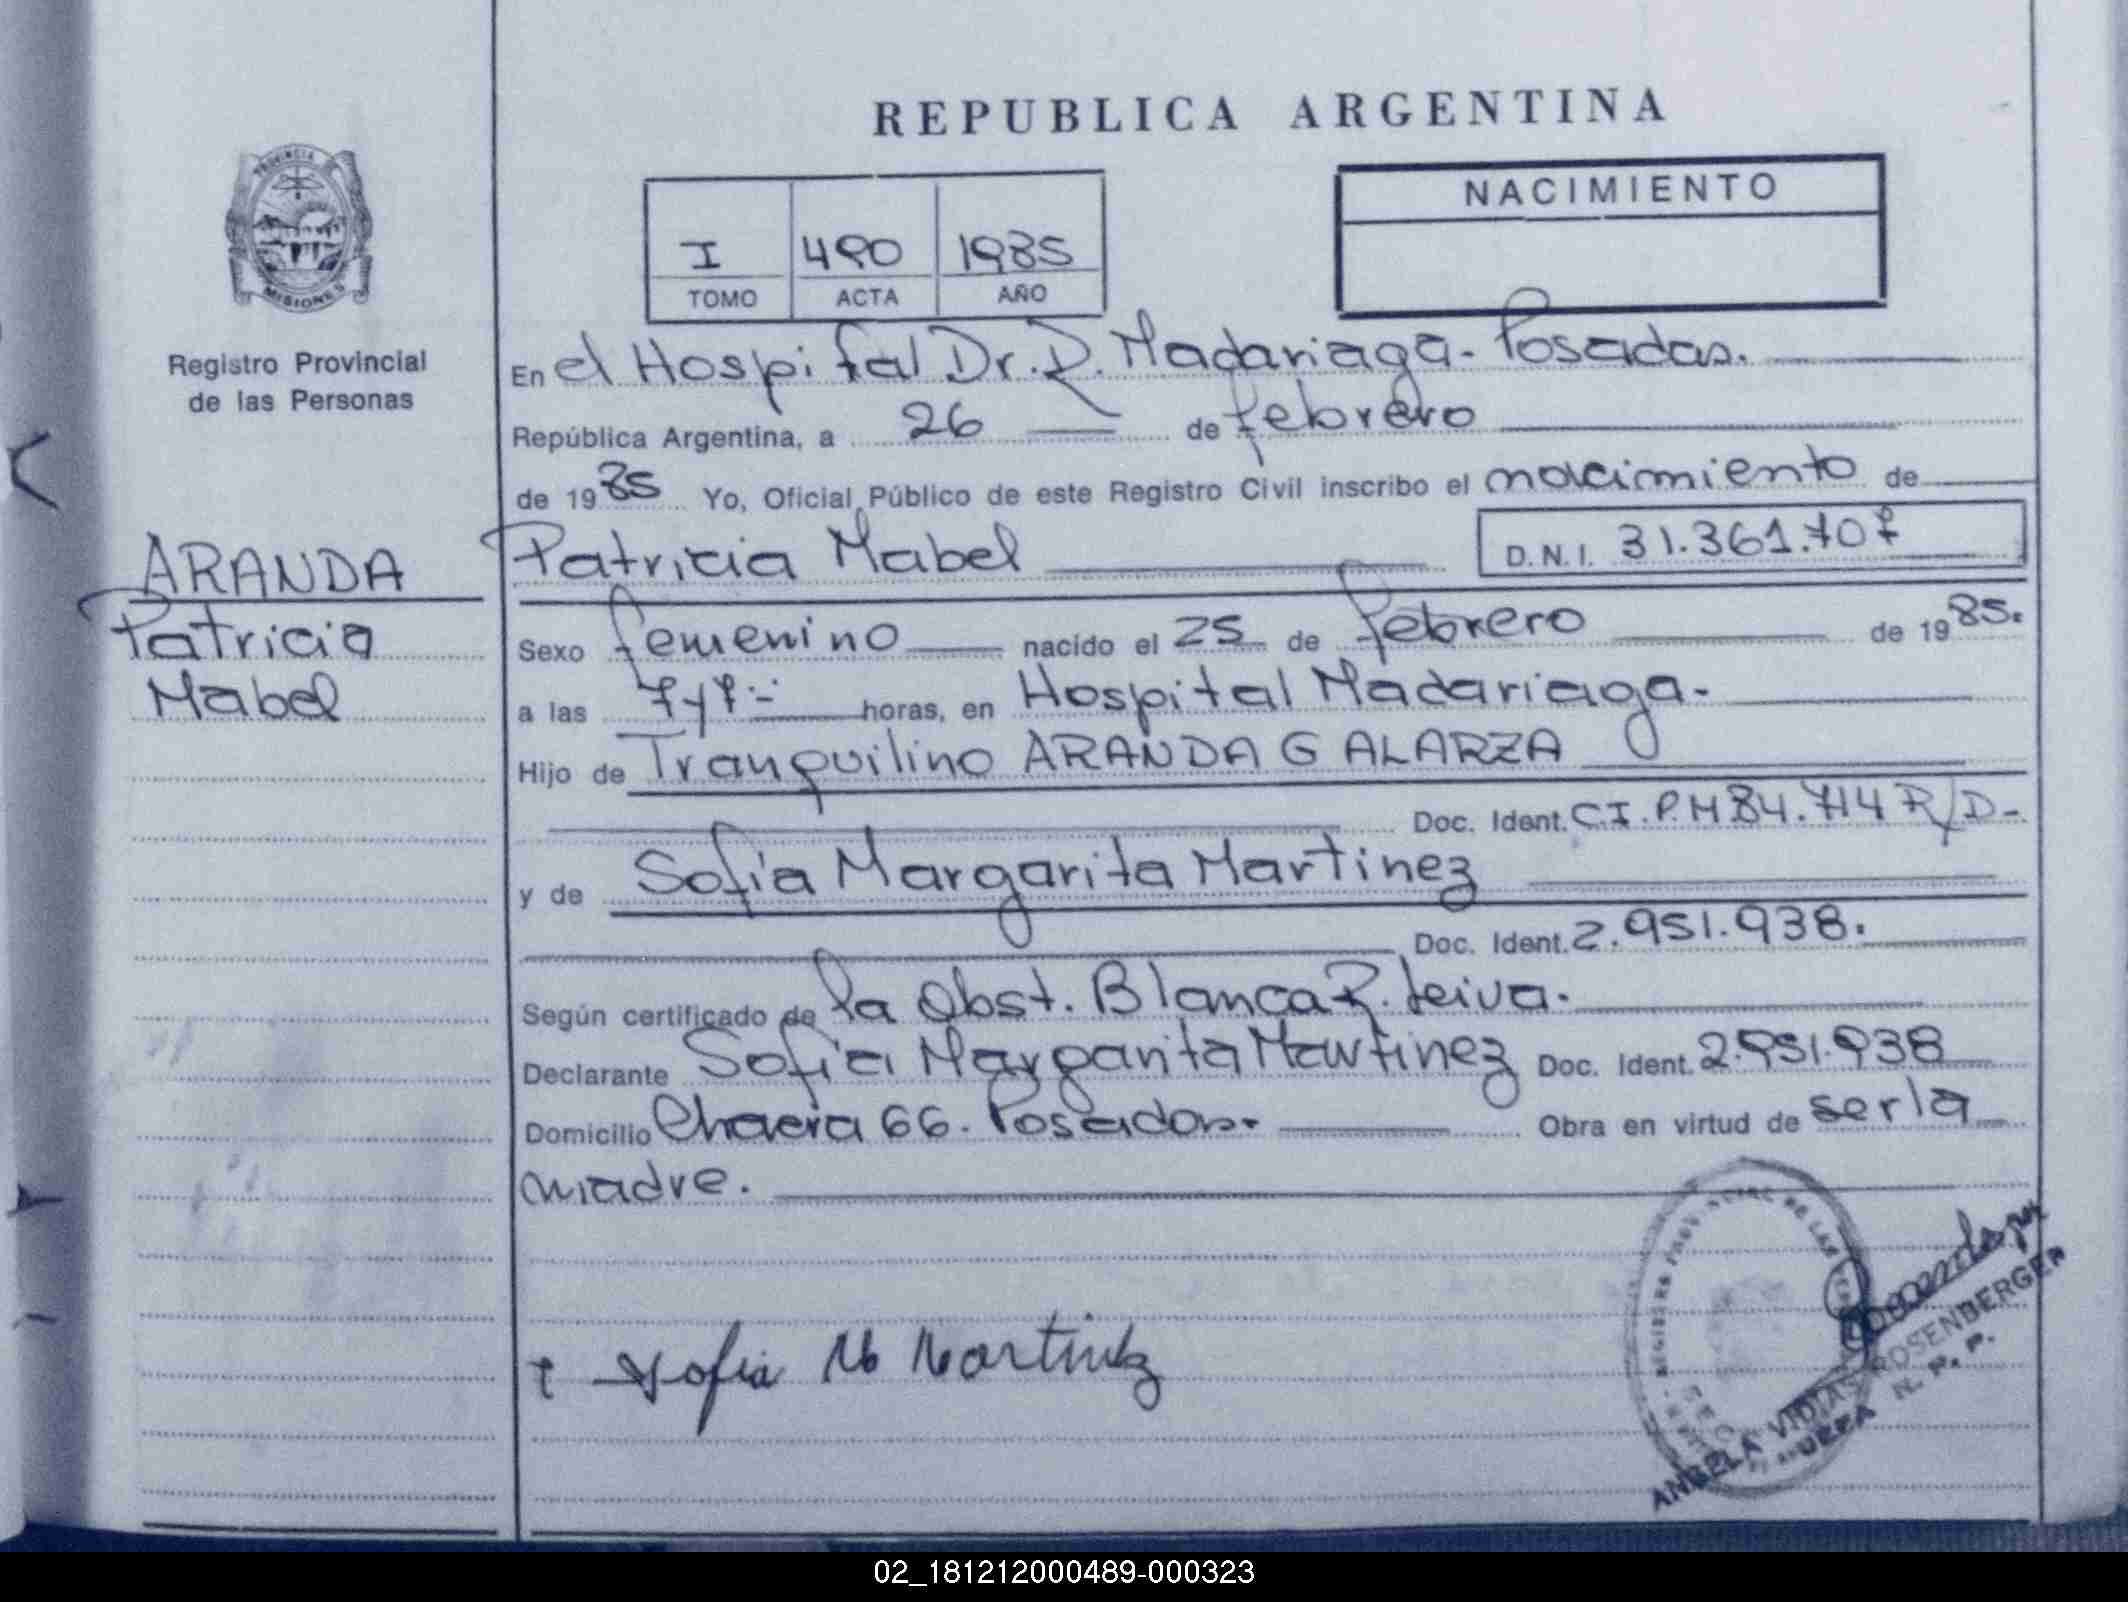 REPUBLICA ARGENTINA
PROVINCIA
MISIONES
Registro Provincial
de las Personas
NACIMIENTO
I 490 1985
TOMO ACTA AÑO
En el Hospital Dr. R. Madariaga - Posadas.
República Argentina, a 26 de febrero
de 1985 Yo, Oficial Público de este Registro Civil inscribo el nacimiento de
ARANDA
Patricia
Mabel
Patricia Mabel D.N.I. 31.361.707
Sexo femenino nacido el 25 de febrero de 1985.
a las 7y7 horas, en Hospital Madariaga.
Hijo de Tranquilino ARANDA GALARZA
Doc. Ident. C.I.P.M 84.714 R/D-
y de Sofia Margarita Martinez
Doc. Ident. 2.951.938.
Según certificado de la Obst. Blanca R. Leiva.
Declarante Sofia Margarita Martinez Doc. Ident. 2.951.938
Domicilio Chacra 66. Posadas. Obra en virtud de ser la
madre.
Sofia M Martinez
ANGELA VIDIAS ROSENBERGER
02_181212000489-000323